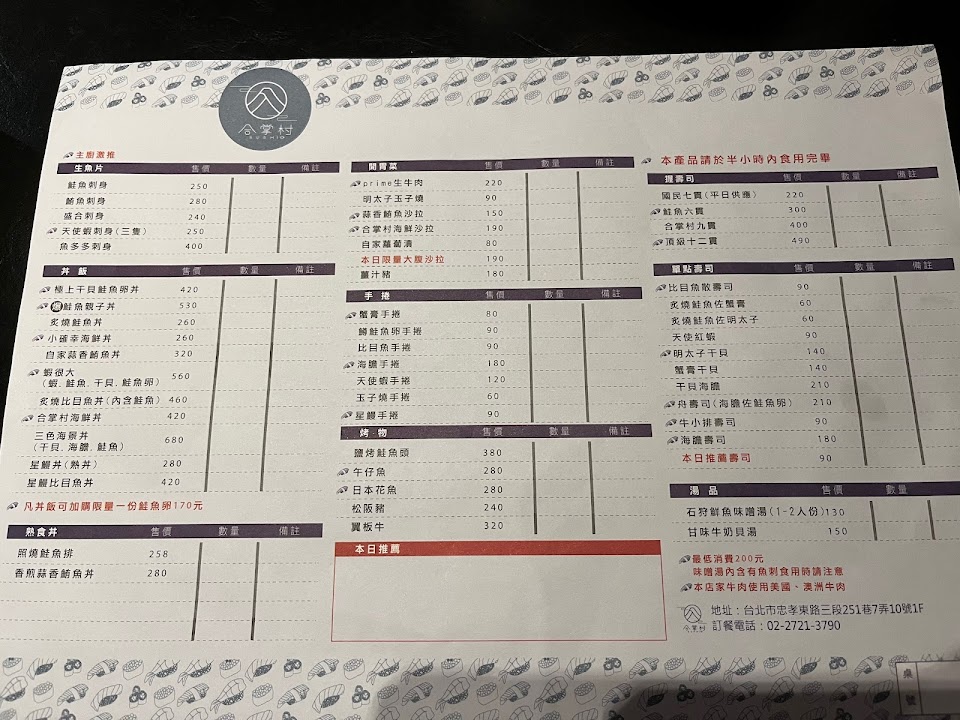 合掌村
主廚激推
生魚片 售價 數量 備註
鮭魚刺身 250
鮪魚刺身 280
盛合刺身 240
天使蝦刺身(三隻) 250
魚多多刺身 400
丼 飯 售價 數量 備註
極上干貝鮭魚卵丼 420
鮭魚親子丼 530
炙燒鮭魚丼 260
小確幸海鮮丼 260
自家蒜香鮪魚丼 320
蝦很大
(蝦,鮭魚,干貝,鮭魚卵) 560
炙燒比目魚丼(內含鮭魚) 460
合掌村海鮮丼 420
三色海景丼
(干貝,海膽,鮭魚) 680
星鰻丼(熟丼) 280
星鰻比目魚丼 420
凡丼飯可加購限量一份鮭魚卵170元
熟食丼 售價 數量 備註
照燒鮭魚排 258
香煎蒜香鮪魚丼 280
開胃菜 售價 數量 備註
prime生牛肉 220
明太子玉子燒 90
蒜香鮪魚沙拉 150
合掌村海鮮沙拉 190
自家蘿蔔漬 80
本日限量大腹沙拉 190
薑汁豬 180
手 捲 售價 數量 備註
蟹膏手捲 80
鱘鮭魚卵手捲 90
比目魚手捲 90
海膽手捲 180
天使蝦手捲 120
玉子燒手捲 60
星鰻手捲 90
烤 物 售價 數量 備註
鹽烤鮭魚頭 380
午仔魚 280
日本花魚 280
松阪豬 240
翼板牛 320
本日推薦
本產品請於半小時內食用完畢
握壽司 售價 數量 備註
國民七貫(平日供應) 220
鮭魚六貫 300
合掌村九貫 400
頂級十二貫 490
單點壽司 售價 數量 備註
比目魚散壽司 90
炙燒鮭魚佐蟹膏 60
炙燒鮭魚佐明太子 60
天使紅蝦 90
明太子干貝 140
蟹膏干貝 140
干貝海膽 210
舟壽司(海膽佐鮭魚卵) 210
牛小排壽司 90
海膽壽司 180
本日推薦壽司 90
湯 品 售價 數量
石狩鮮魚味噌湯(1-2人份)130
甘味牛奶貝湯 150
最低消費200元
味噌湯內含有魚刺食用時請注意
本店家牛肉使用美國、澳洲牛肉
合掌村
地址:台北市忠孝東路三段251巷7弄10號1F
訂餐電話:02-2721-3790
桌號